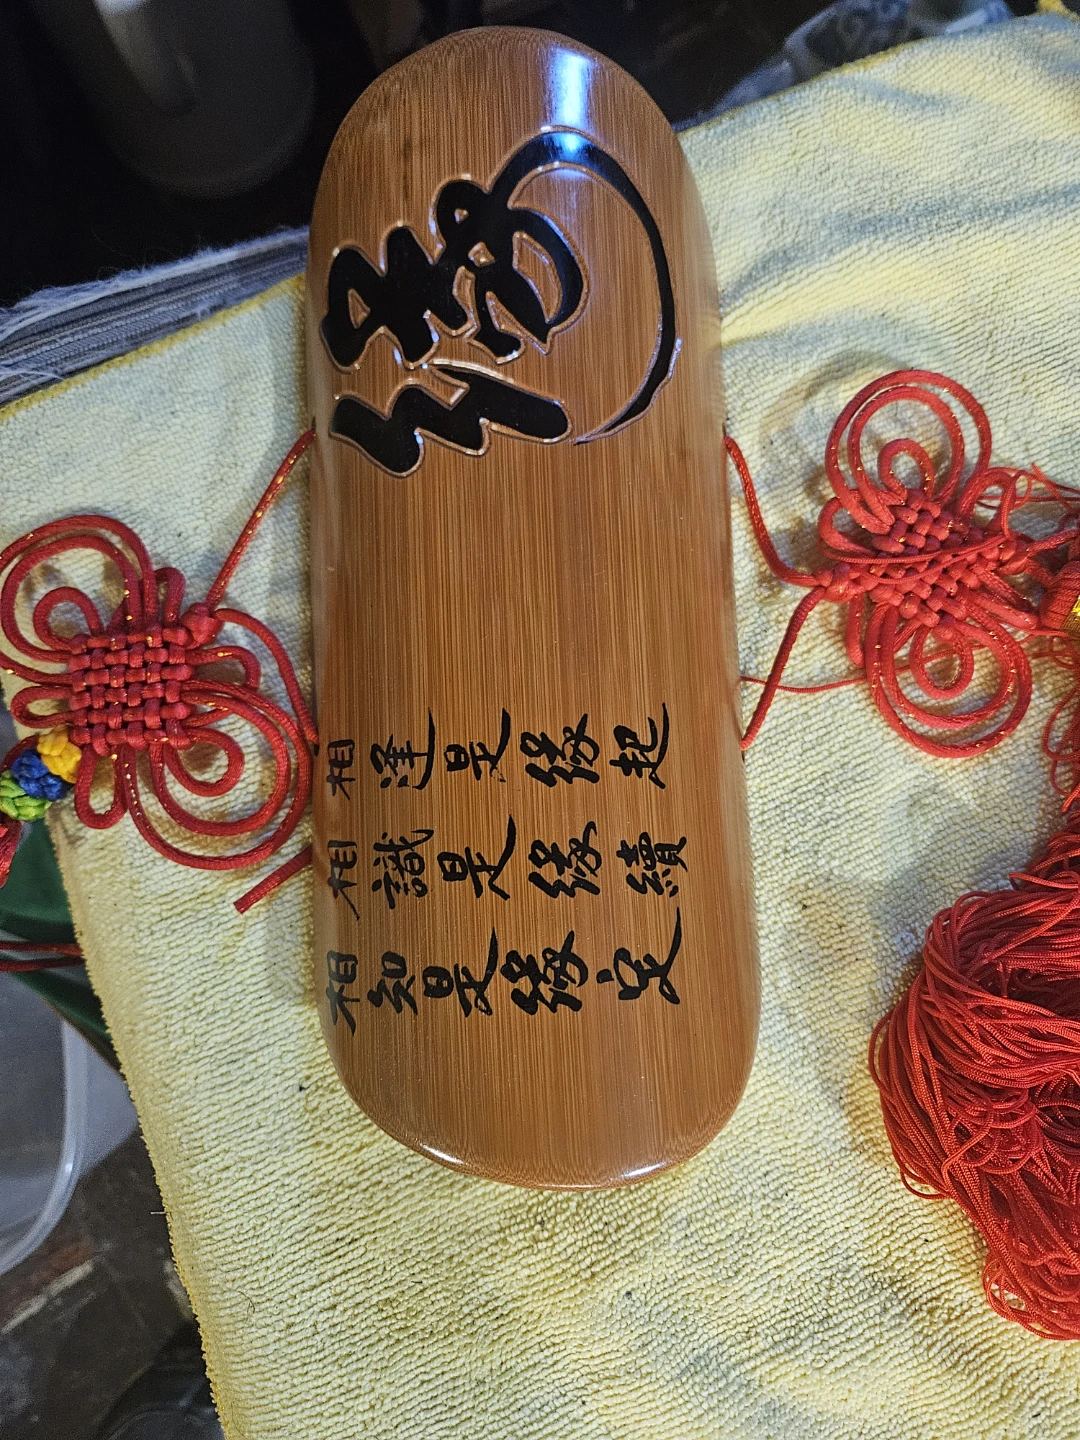 緣
相逢是緣起
相識是緣續
相知是緣定